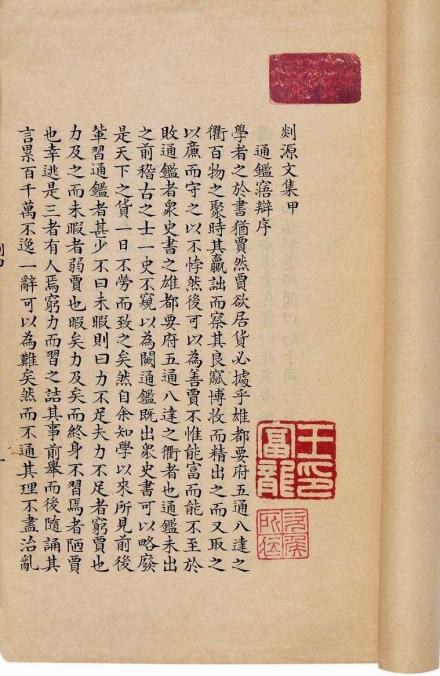 剡源文集甲
通鑑寤辯序
學者之於書猶賈然賈欲居貨必據乎雄都要府五通八達之
衢百物之聚時其贏詘而察其良窳博收而精出之而又取之
以廉而守之以不悖然後可以為善賈不惟能富而能不至於
敗通鑑者衆史書之雄都要府五通八達之衢者也通鑑未出
之前稽古之士一史不窺以為闕通鑑既出衆史書可以略廢
是天下之貨一日不勞而致之矣然自余知學以來所見前後
輩習通鑑者甚少不曰未暇則曰力不足夫力不足者窮賈也
力及之而未暇者弱賈也暇矣力及矣而終身不習焉者陋賈
也幸逃是三者有人焉窮力而習之詰其事前舉而後隨誦其
言累百千萬不逸一辭可以為難矣然而不通其理不盡治亂
王印
富龍